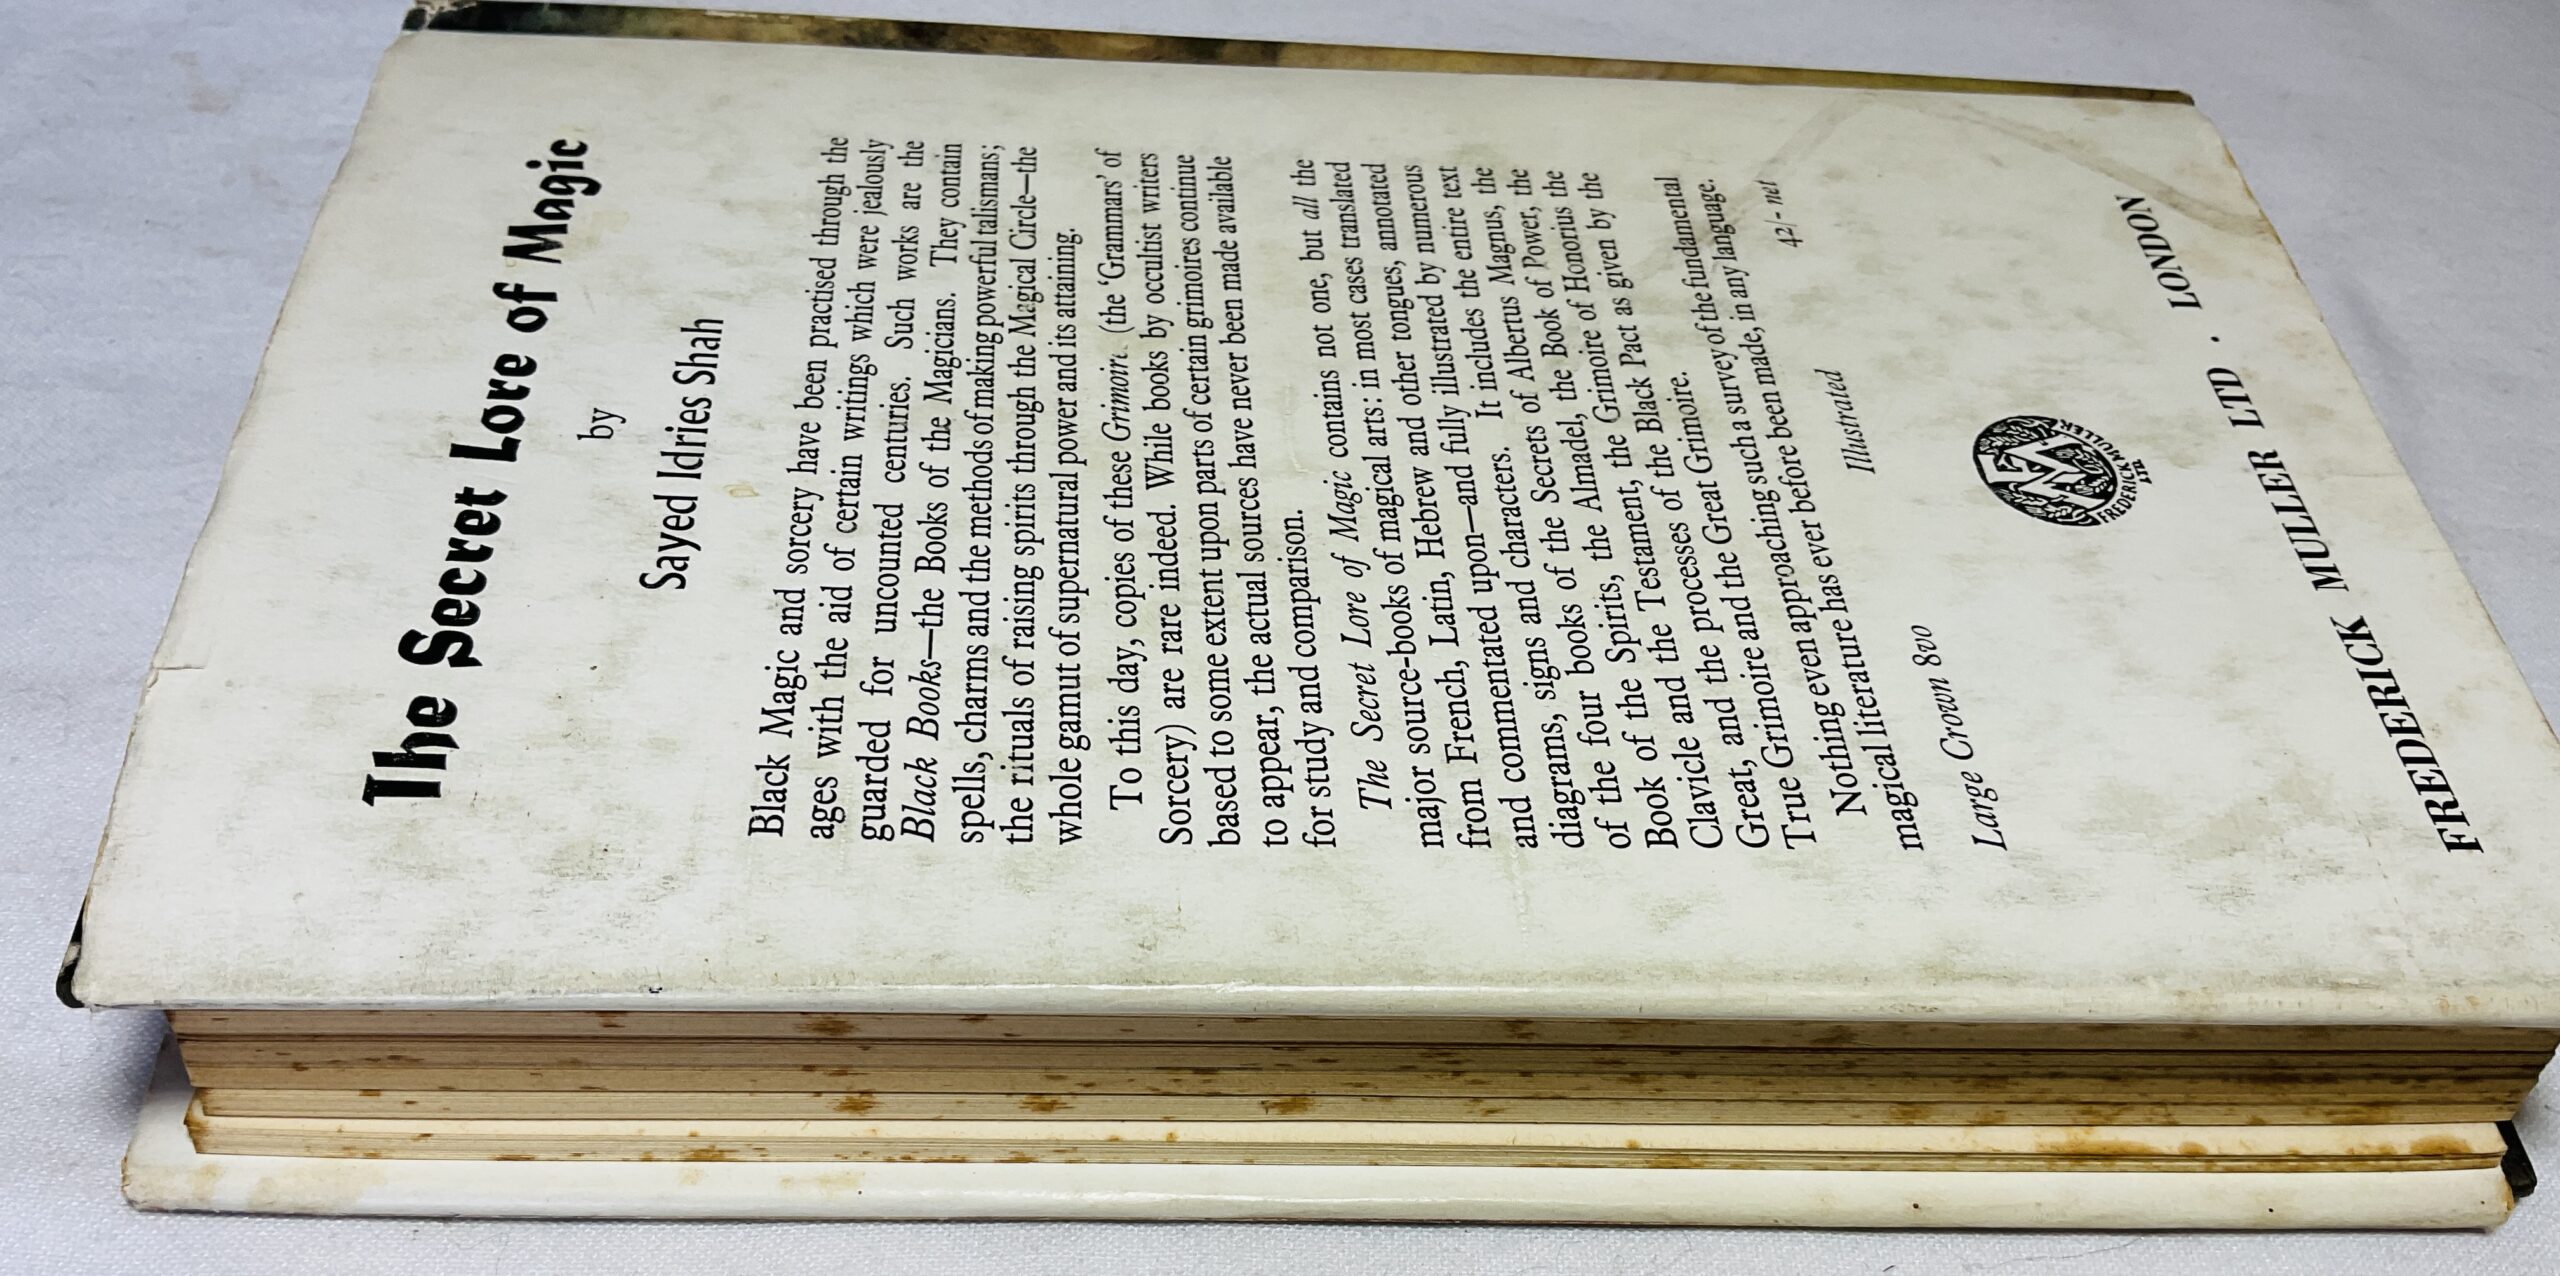 The Secret Lore of Magic
by
Sayed Idries Shah
Black Magic and sorcery have been practised through the
ages with the aid of certain writings which were jealously
guarded for uncounted centuries. Such works are the
Black Books—the Books of the Magicians. They contain
spells, charms and the methods of making powerful talismans;
the rituals of raising spirits through the Magical Circle—the
whole gamut of supernatural power and its attaining.
To this day, copies of these (the ‘Grammars’ of
Sorcery) are rare indeed. While books by occultist writers
based to some extent upon parts of certain grimoires continue
to appear, the actual sources have never been made available
for study and comparison.
The Secret Lore of Magic contains not one, but all the
major source-books of magical arts: in most cases translated
from French, Latin, Hebrew and other tongues, annotated
and commentated upon—and fully illustrated by numerous
diagrams, signs and characters. It includes the entire text
of the four books of the Secrets of Albertus Magnus, the
Book of the Spirits, the Almadel, the Book of Power, the
Clavicle and the Testament, the Grimoire of Honorius the
Great, and the processes of the Black Pact as given by the
True Grimoire and the Great Grimoire.
Nothing even approaching such a survey of the fundamental
magical literature has ever before been made, in any language.
Large Crown 8vo Illustrated 42/- net
FREDERICK MULLER
LTD.
FREDERICK MULLER LTD · LONDON